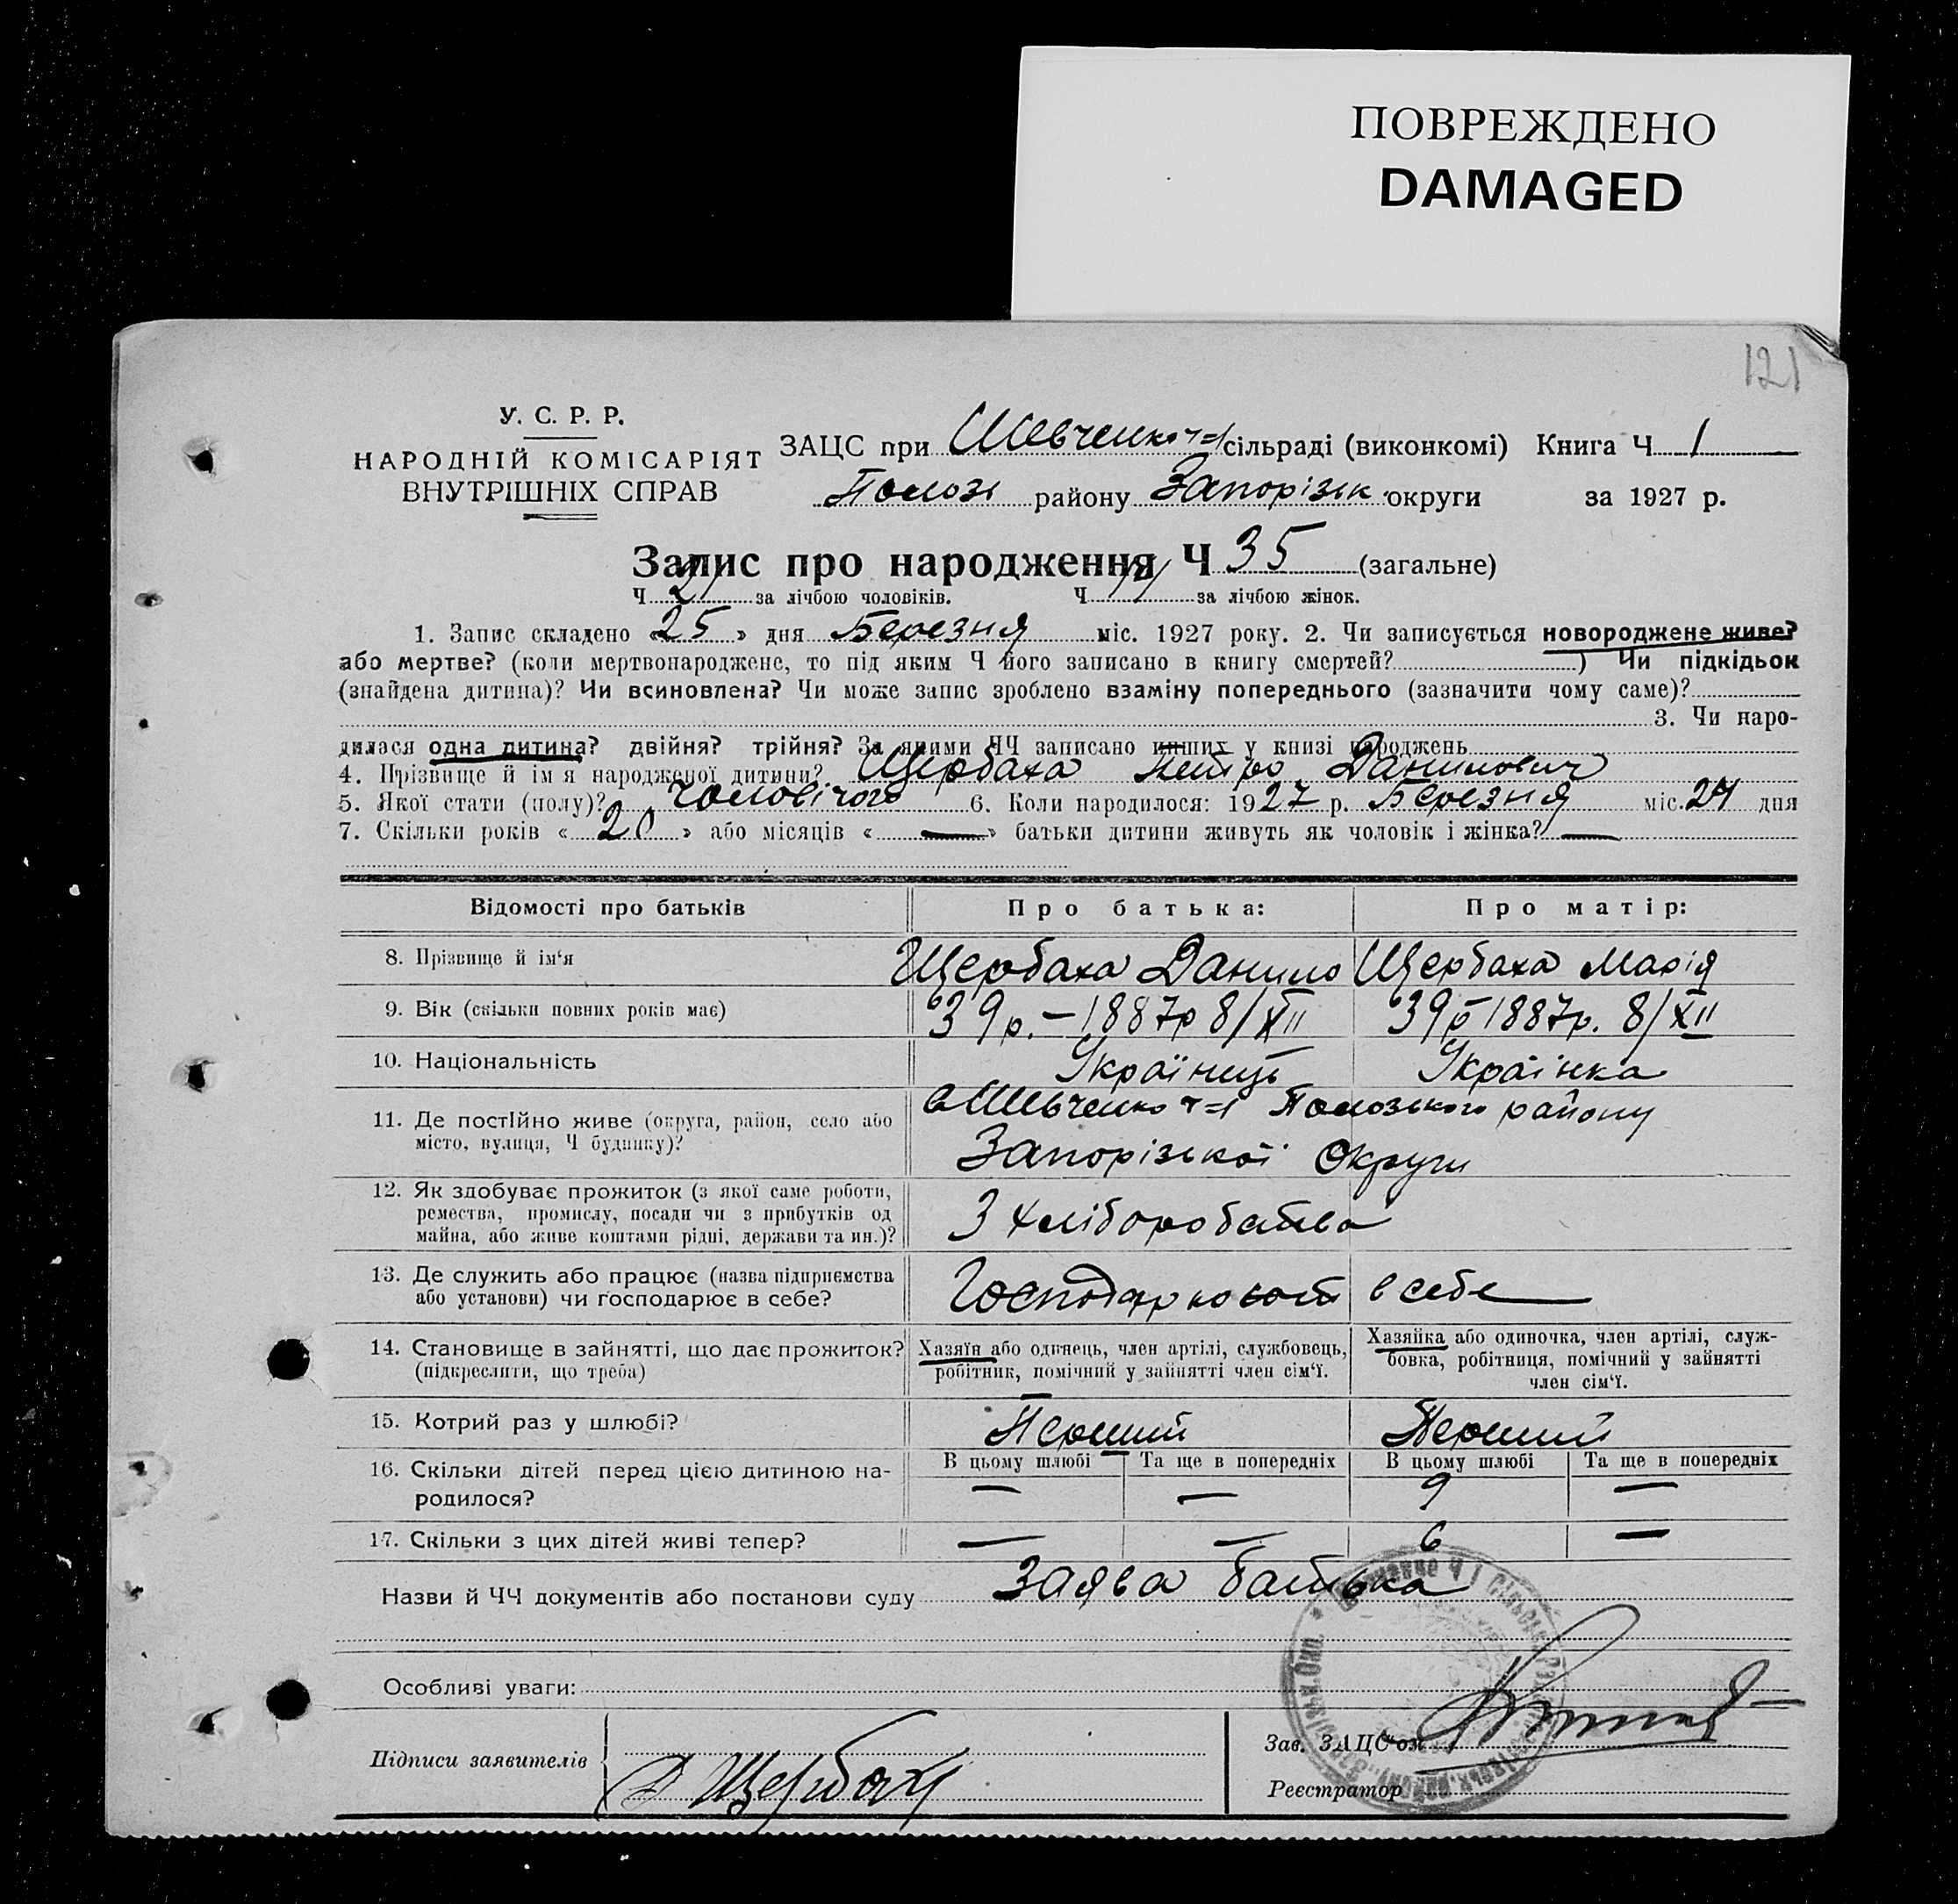 ПОВРЕЖДЕНО
DAMAGED
121
У. С. Р. Р.
НАРОДНІЙ КОМІСАРІЯТ
ВНУТРІШНІХ СПРАВ
ЗАЦС при Шевченко сільраді (виконкомі) Книга Ч 1
Полозь району Запорізьк. округи за 1927 р.
Запис про народження Ч 35 (загальне)
Ч 21 за лічбою чоловіків. Ч 14 за лічбою жінок.
1. Запис складено «25» дня Березня міс. 1927 року. 2. Чи записується новороджене живе?
або мертве? (коли мертвонароджене, то під яким Ч його записано в книгу смертей? ) Чи підкідьок
(знайдена дитина)? Чи всиновлена? Чи може запис зроблено взаміну попереднього (зазначити чому саме)?
3. Чи наро-
дилася одна дитина? двійня? трійня? За якими ЧЧ записано инших у книзі народжень
4. Прізвище й ім'я народженої дитини? Щербаха Петро Данилович
5. Якої стати (полу)? Чоловічого 6. Коли народилося: 1927 р. Березня міс. 24 дня
7. Скільки років «20» або місяців « — » батьки дитини живуть як чоловік і жінка? —
Відомості про батьків Про батька: Про матір:
8. Прізвище й ім'я Щербаха Данило Щербаха Марія
9. Вік (скільки повних років має) 39р. – 1887р 8/XII 39р 1887р. 8/XII
10. Національність Українець Українка
11. Де постійно живе (округа, район, село або
місто, вулиця, Ч будинку)?
Шевченко Полозського району
Запорізької Округи
12. Як здобуває прожиток (з якої саме роботи,
ремества, промислу, посади чи з прибутків од
майна, або живе коштами рідні, держави та ин.)?
З хліборобства
13. Де служить або працює (назва підприємства
або установи) чи господарює в себе?
Господарюють в себе
14. Становище в зайнятті, що дає прожиток?
(підкреслити, що треба)
Хазяїн або одинець, член артілі, службовець,
робітник, помічний у зайнятті член сім'ї.
Хазяйка або одиночка, член артілі, служ-
бовка, робітниця, помічний у зайнятті
член сім'ї.
15. Котрий раз у шлюбі? Перший Перший
16. Скільки дітей перед цією дитиною на-
родилося?
В цьому шлюбі Та ще в попередніх В цьому шлюбі Та ще в попередніх
— — 9 —
17. Скільки з цих дітей живі тепер? — — 6 —
Назви й ЧЧ документів або постанови суду Заява батька
Особливі уваги:
Підписи заявителів Д Щербаха
Зав. ЗАЦС'ом
Реєстратор